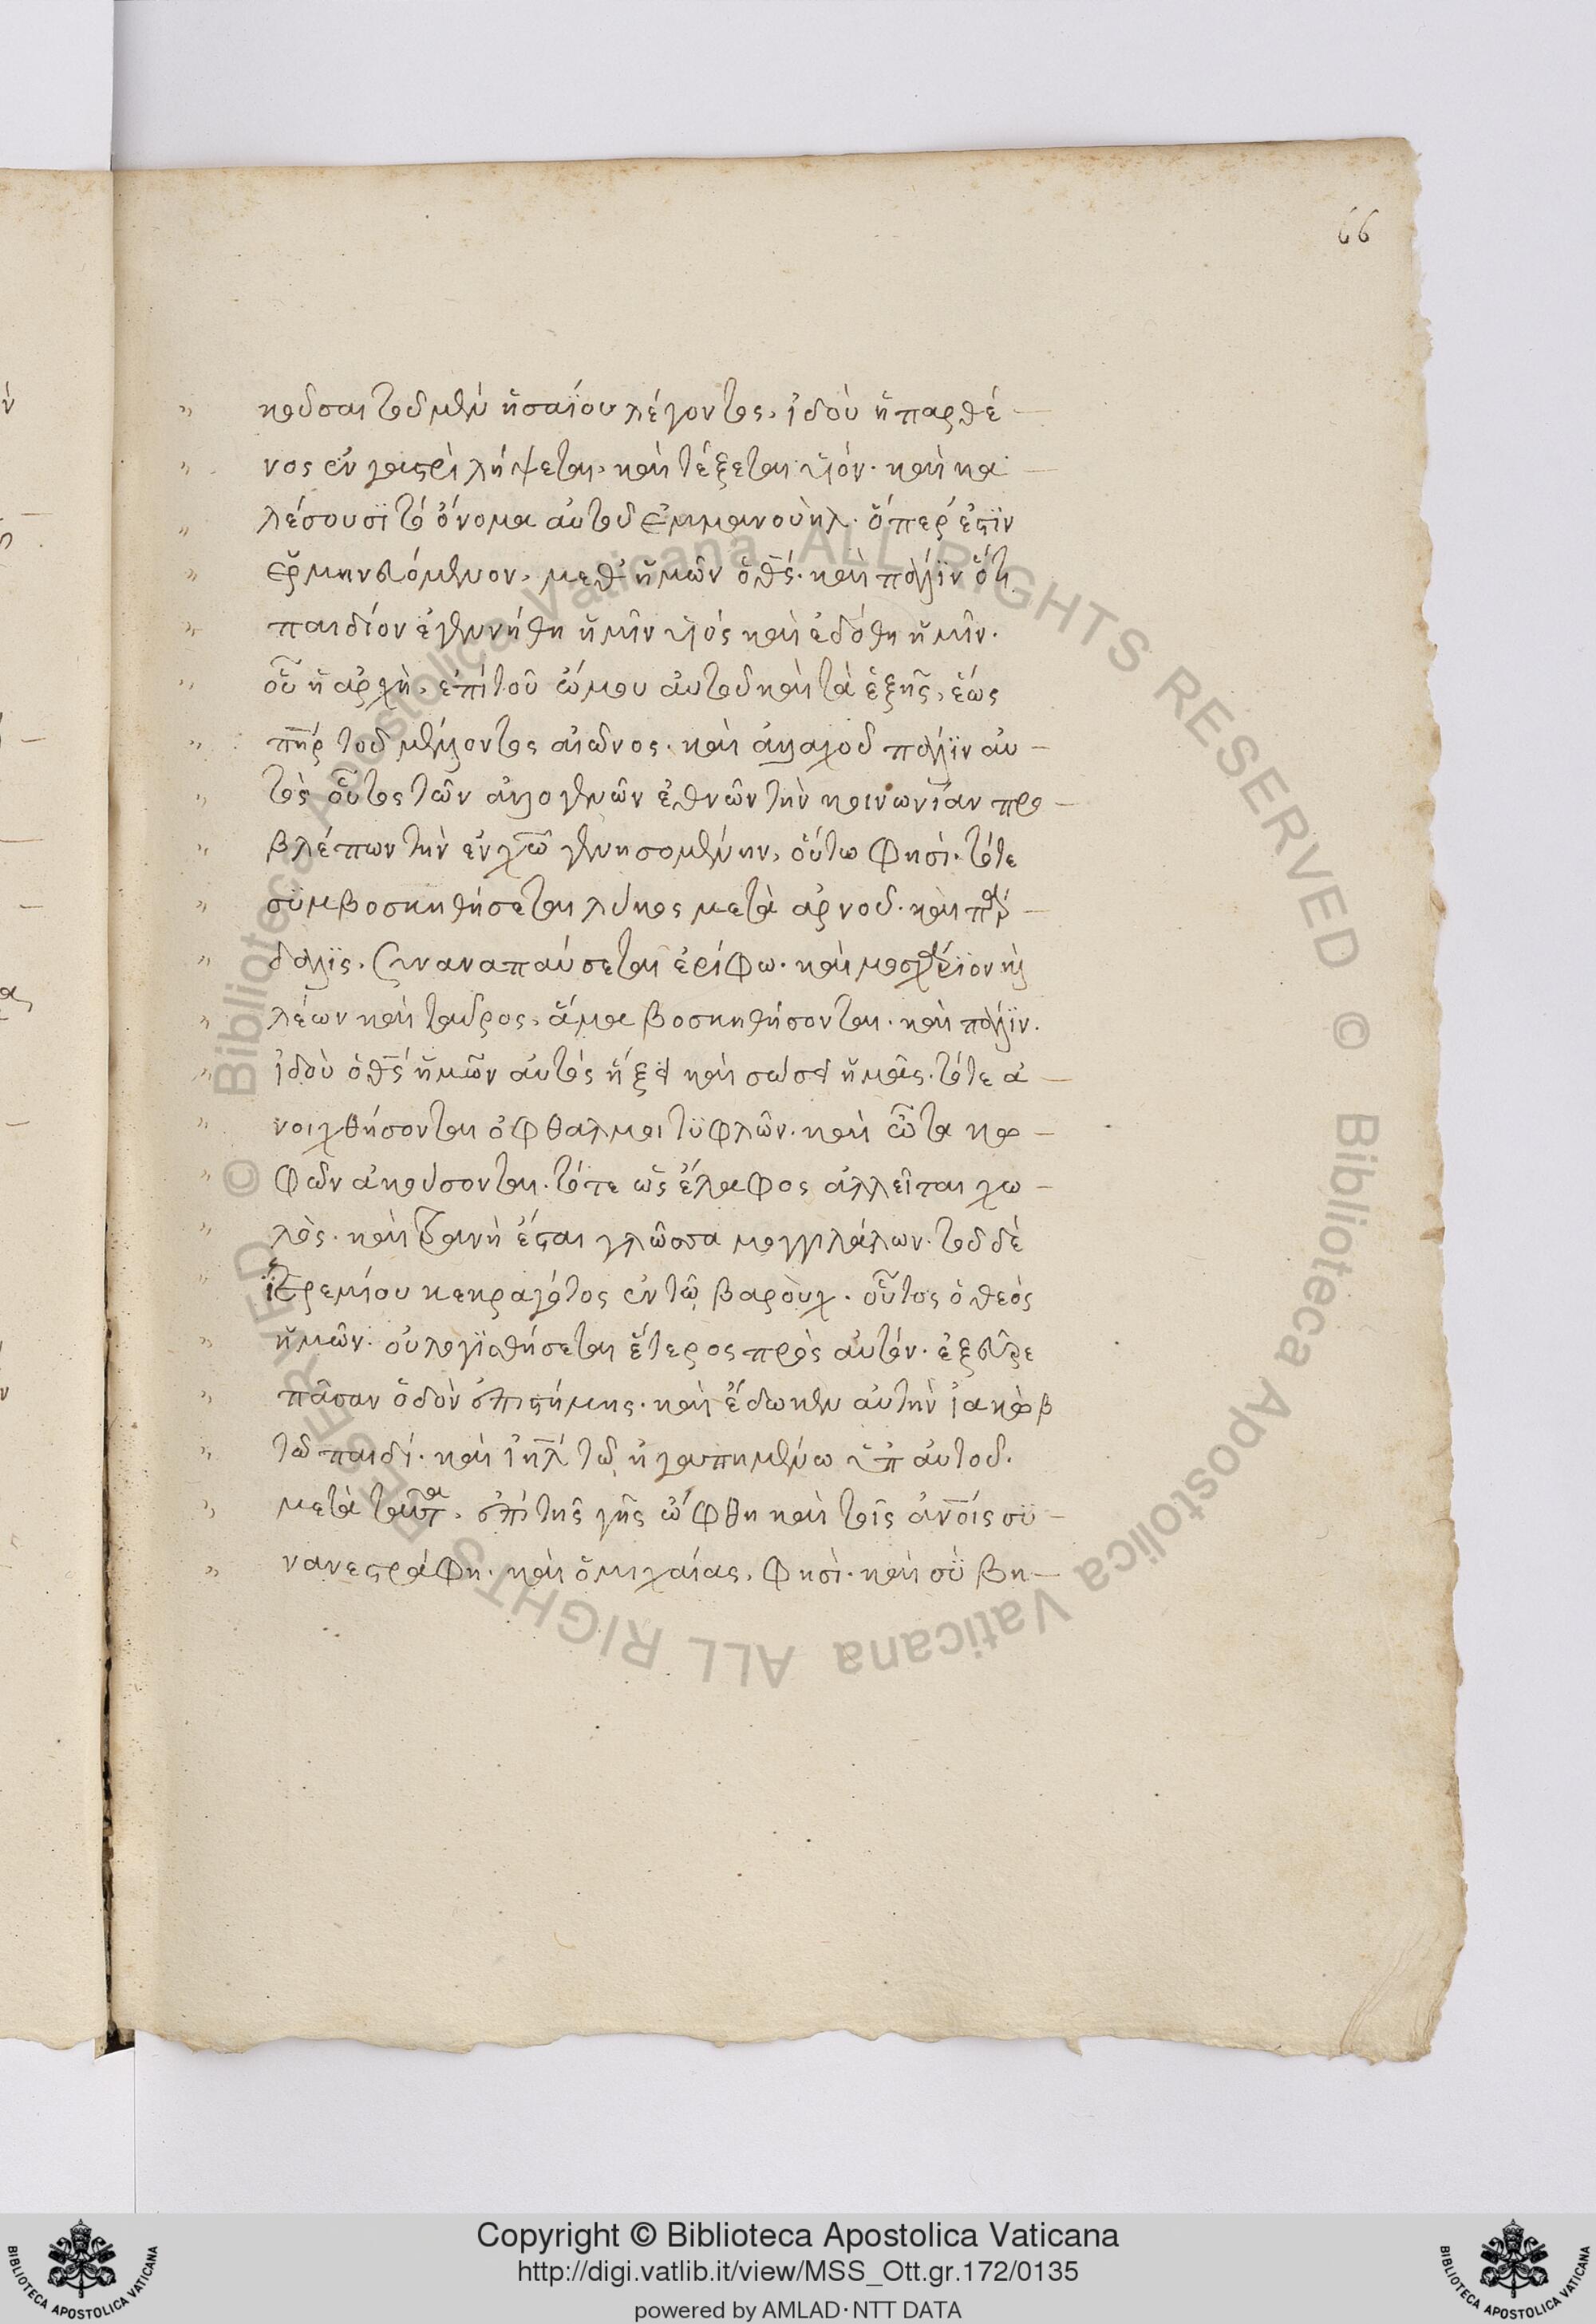 66
κοῦσαι τοῦ μὲν ἡσαΐου λέγοντος, ἰδοὺ ἡ παρθέ-
νος ἐν γαστρὶ λήψεται, καὶ τέξεται υἱόν· καὶ κα-
λέσουσϊ τὸ ὄνομα αὐτοῦ ἐμμανουὴλ· ὅπερ ἐστϊν
ἑρμηνευόμενον, μεθ' ἡμῶν ὁ θς· καὶ πάλϊν ὅτι
παιδίον ἐγεννήθη ἡμῖν υἱός καὶ ἐδόθη ἡμῖν.
οὗ ἡ ἀρχὴ, ἐπὶ τοῦ ὤμου αὐτοῦ καὶ τὰ ἑξῆς, ἕως
πηρ τοῦ μέλλοντος αἰῶνος· καὶ ἀλλαχοῦ πάλϊν αὐ-
τὸς οὗτος τῶν ἀλλογενῶν ἐθνῶν τὴν κοινωνΐαν προ-
βλέπων τὴν ἐν χω γενησομένην, οὕτω φησὶ· τότε
συμβοσκηθήσεται λύκος μετὰ ἀρνοῦ· καὶ πάρ-
δαλϊς, συναναπαύσεται ἐρίφω· καὶ μοσχάριον καὶ
λέων καὶ ταῦρος, ἅμα βοσκηθήσονται· καὶ πάλϊν.
ἰδοὺ ὁ θς ἡμῶν αὐτὸς ἥξει καὶ σώσει ἡμᾶς· τότε ἀ-
νοιχθήσονται ὀφθαλμοι τϋφλῶν· καὶ ὦτα κω-
φῶν ἀκούσονται· τότε ὡς ἔλαφος ἀλλεῖται χω-
λὸς· καὶ τρανὴ ἔσται γλῶσσα μογγιλάλων· τοῦ δὲ
ϊερεμίου κεκραγότος ἐν τῶ βαροὺχ· οὗτος ὁ θεός
ἡμῶν· οὐ λογϊσθήσεται ἕτερος πρὸς αὐτόν· ἐξεῦρε
πᾶσαν ὁδὸν ἐπιστήμης· καὶ ἔδωκεν αὐτὴν ἰακὼβ
τῶ παιδί· καὶ ἰηλ τῶ ἠγαπημένω ὑπ αὐτοῦ.
μετὰ ταῦτα, ἐπὶ τῆς γῆς ὤφθη καὶ τοῖς ἀνοις συ-
νανεστράφη· καὶ ὁ μιχαίας, φησὶ· καὶ σϋ βη-
Copyright © Biblioteca Apostolica Vaticana
http://digi.vatlib.it/view/MSS_Ott.gr.172/0135
powered by AMLAD·NTT DATA
BIBLIOTECA APOSTOLICA VATICANA
BIBLIOTECA APOSTOLICA VATICANA
© Biblioteca Apostolica Vaticana ALL RIGHTS RESERVED © Biblioteca Apostolica Vaticana ALL RIGHTS RESERVED